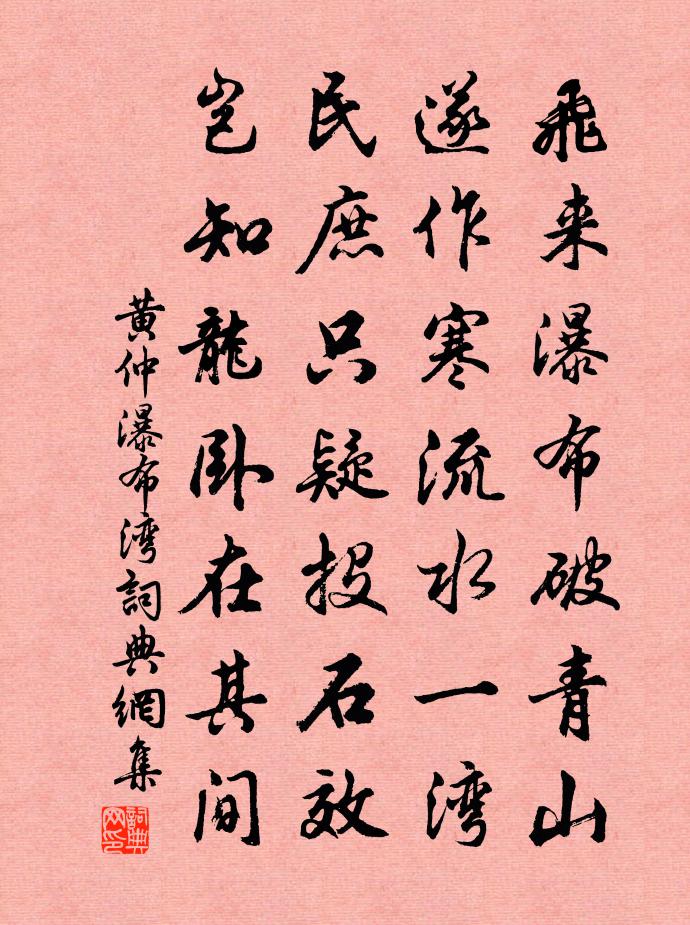 飛来瀑布破青山
遂作寒流水一湾
民庶只疑投石效
岂知龍卧在其间
黄仲瀑布湾詞典網集
詞典网印